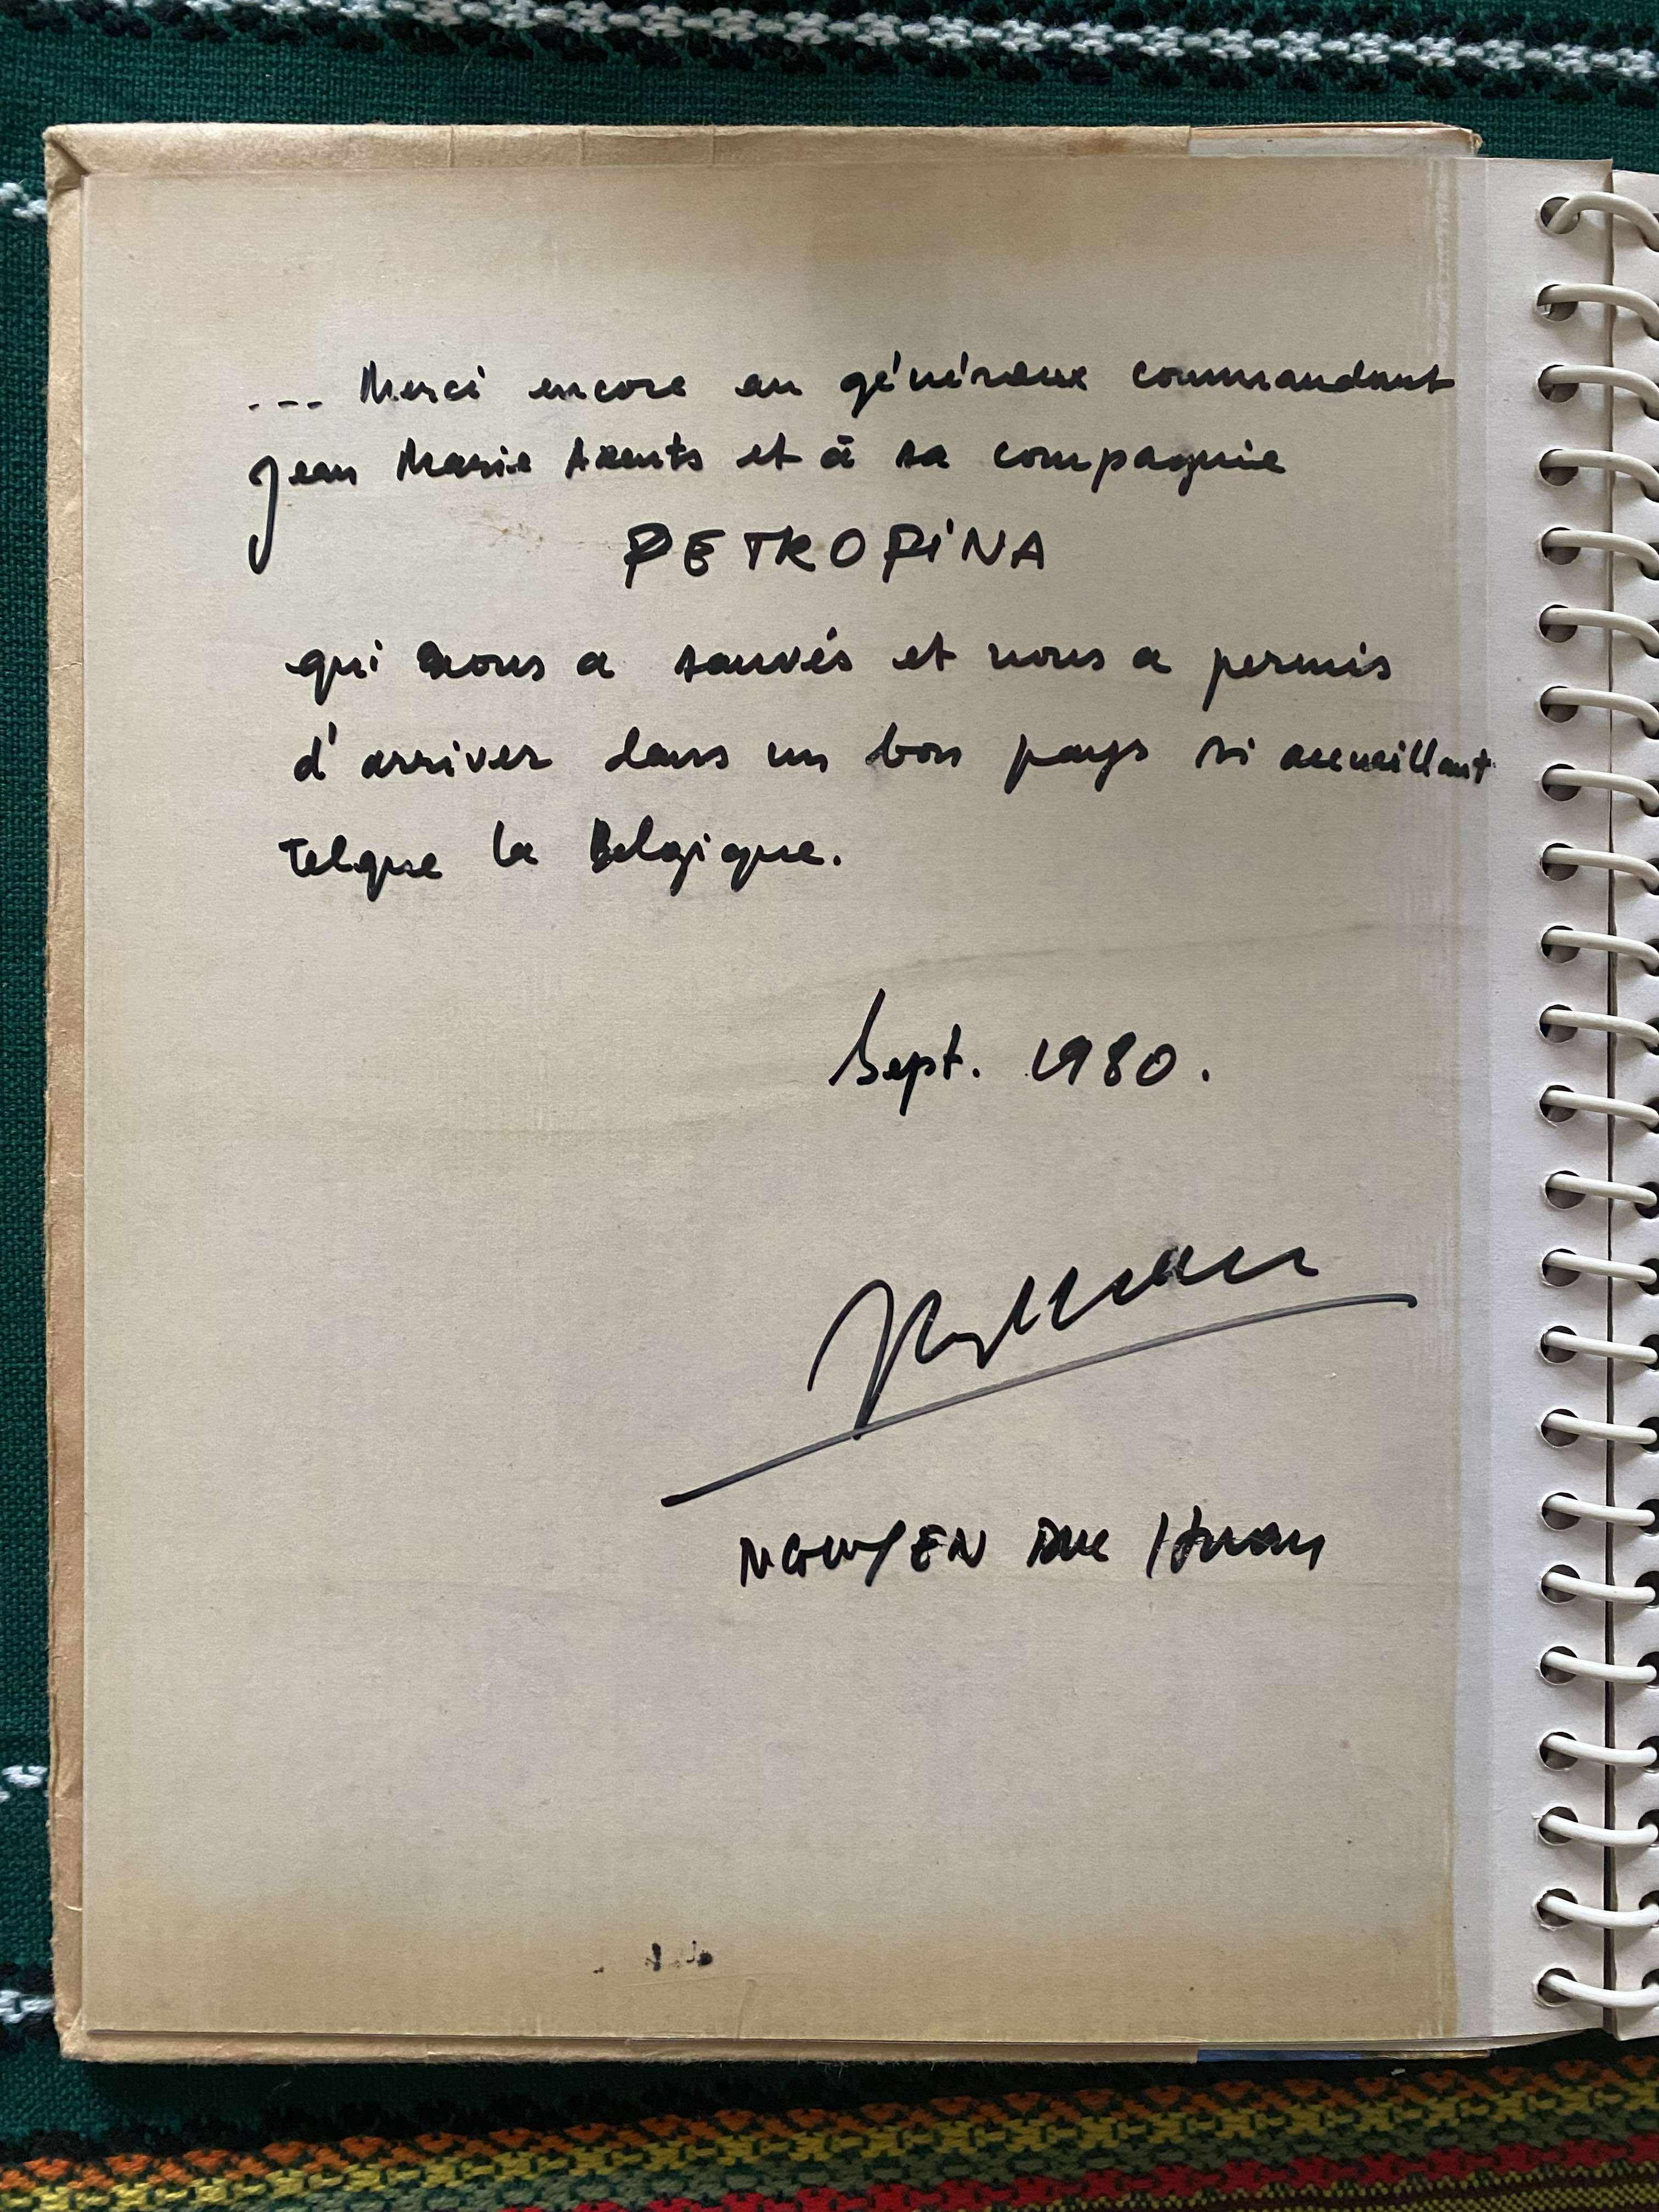 ... Merci encore au généreux commandant
Jean Marie Axents et à sa compagnie
PETROFINA
qui nous a sauvés et nous a permis
d'arriver dans un bon pays si accueillant
Telque la Belgique.
Sept. 1980.
NGUYEN Duc Huan